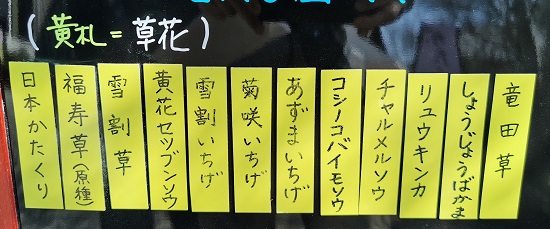 (黄札=草花)
竜田草
しょうじょうばかま
リュウキンカ
チャルメルソウ
コシノコバイモソウ
あずまいちげ
菊咲いちげ
雪割いちげ
黄花セツブンソウ
雪割草
福寿草(原種)
日本かたくり